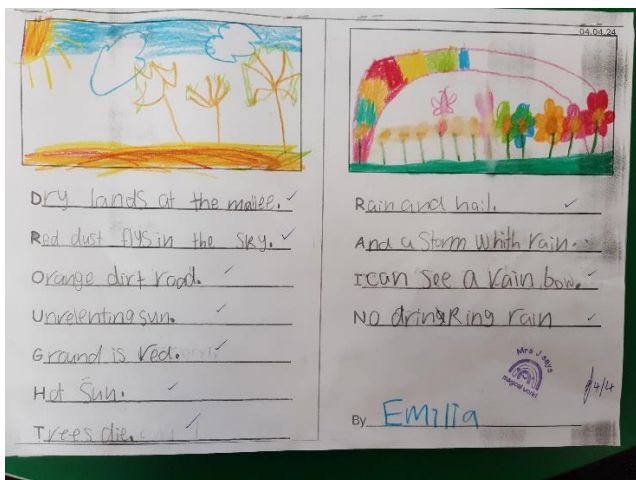 04.04.24
Dry lands at the mallee.
Red dust flys in the sky.
Orange dirt road.
Unrelenting sun.
Ground is red.
Hot Sun.
Trees die.
Rain and hail.
And a Storm Whith rain.
I can see a rain bow.
No dringking rain
Mrs J says
magical world
4/4
By Emilia